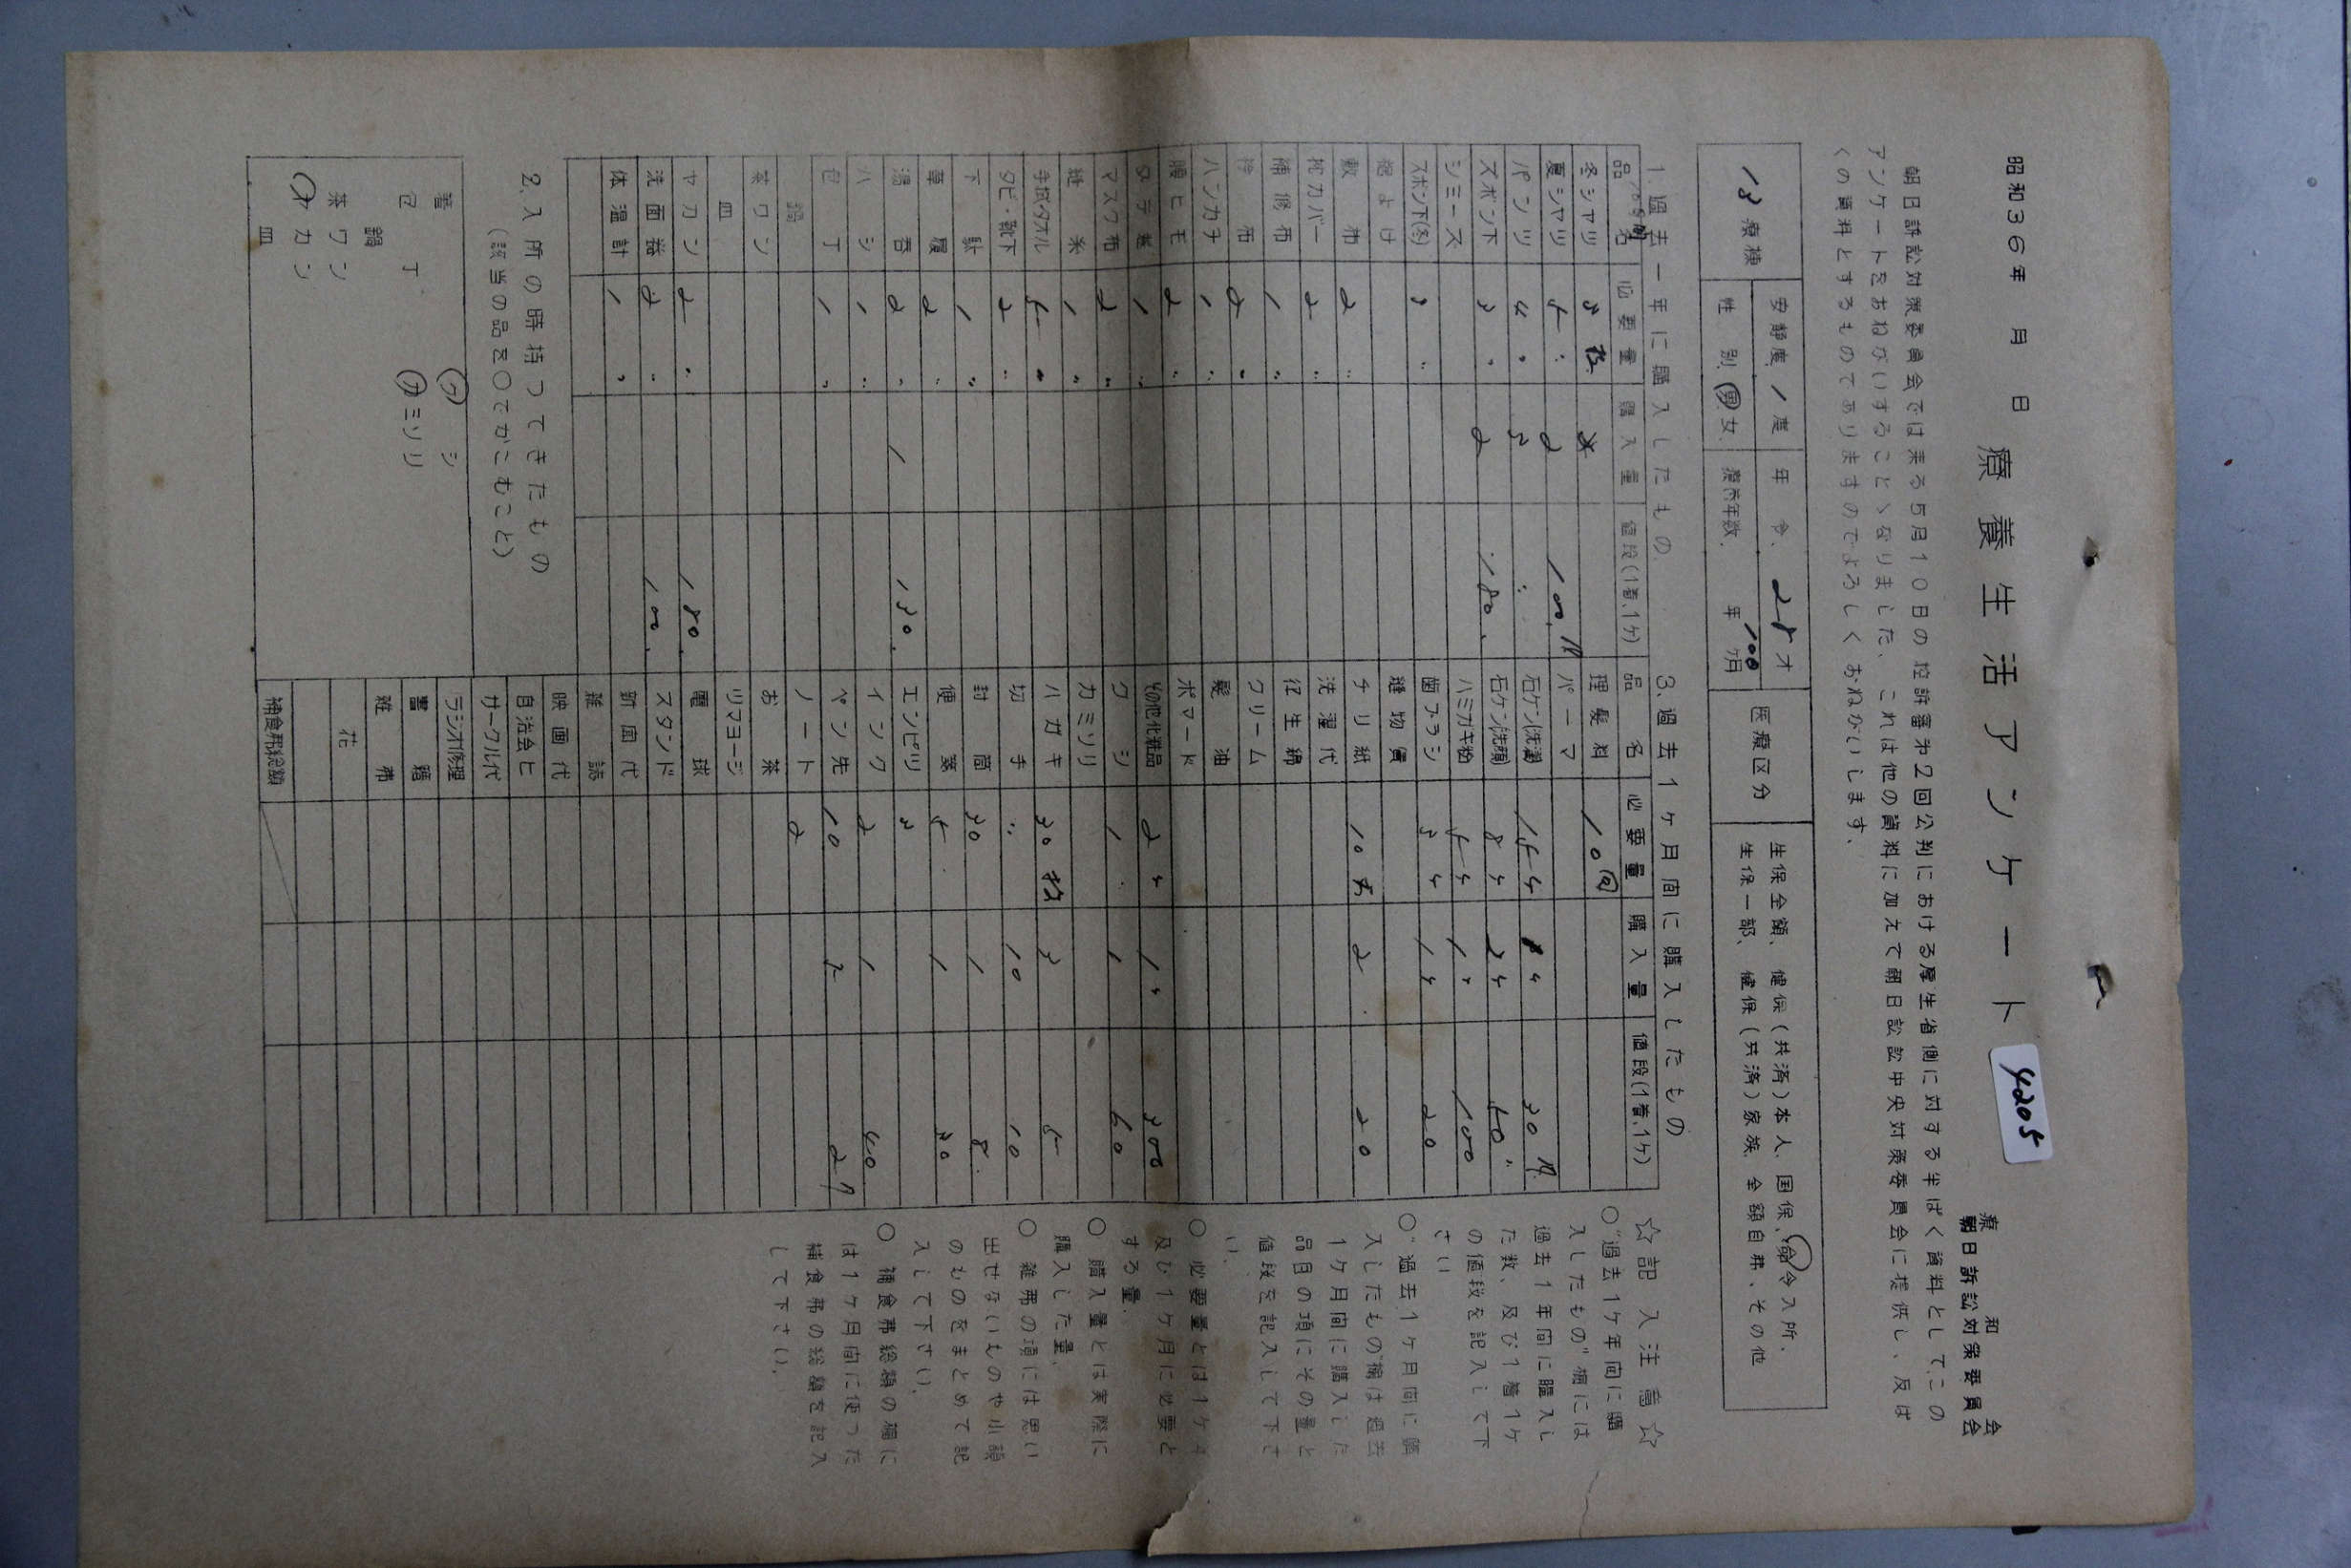 昭和36年　月　日
療養生活アンケート
4205
療和会
朝日訴訟対策委員会
朝日訴訟対策委員会では来る5月10日の控訴審第2回公判における厚生省側に対する半ばく資料として、この
アンケートをおねがいすることゝなりました、これは他の資料に加えて朝日訟訟中央対策委員会に提供し、反ば
くの資料とするものでありますのでよろしくおねがいします、
18療棟
安静度 1度
年令、28才
医療区分
生保全額、健保(共済)本人、国保、命令入所、
性別 男 女
療養年数、年 100ヶ月
生保一部、健保(共済)家族、全額自弗、その他
1 過去一年に購入したもの
品名 必要量 購入量 値段(1着、1ケ)
冬シャツ 3枚
夏シャツ 5〃 2 100円
パンツ 4〃 3 〃
ズボン下 3〃 2 180
シミーズ
ズボン下(冬) 3〃
敷布 2〃
枕カバー 2〃
補修布 1〃
2〃
ハンカチ 1〃
腰ヒモ 2〃
1〃
マスク布 2〃
縫糸 1〃
手拭タオル 5〃
タビ・靴下 2〃
下駄 1〃
草履 2〃
湯呑 2〃 1 130
ハシ 1〃
包丁 1〃
鍋
茶ワン
皿
ヤカン 2〃 180
洗面器 2〃 100
体温計 1〃
2.入所の時持つてきたもの
(該当の品を○でかこむこと)
箸 クシ
包丁 カミソリ
鍋
茶ワン
ヤカン
皿
3.過去1ヶ月間に購入したもの
品名 必要量 購入量 値段(1着、1ケ)
理髪料 10回
パーマ
石ケン(洗濯) 15ケ ケ 30円
石ケン(洗顔) 8ケ 2ケ 50〃
ハミガキ粉 5ケ 1ケ 100
歯ブラシ 3ケ 1ケ 20
縫物賃
チリ紙 10 2 20
洗濯代
衛生綿
クリーム
髪油
ポマード
その他化粧品 2ケ 1ケ 300
クシ 1〃 1 60
カミソリ
ハガキ 30枚 3 5
切手 〃 10 10
封筒 30 1 8
便箋 5 1 30
エンピツ 3
インク 2 1 40
ペン先 10 2 2円
ノート 2
お茶
ツマヨージ
電球
スタンド
新聞代
雑誌
映画代
自治会ヒ
サークル代
ラジオ修理
書籍
雑弗
花
補食弗総額
☆記入注意☆
○“過去1ケ年間に購
入したもの”欄には
過去1年間に購入し
た数、及び1着1ケ
の値段を記入して下
さい
○“過去1ケ月間に購
入したもの”欄は過去
1ケ月間に購入した
品目の項にその量と
値段を記入して下さ
い、
○ 必要量とは1ケ年
及び1ケ月に必要と
する量、
○ 購入量とは実際に
購入した量、
○ 雑弗の項には思い
出せないものや小額
のものをまとめて記
入して下さい、
○ 補食弗総額の欄に
は1ケ月間に使った
補食弗の総額を記入
して下さい、